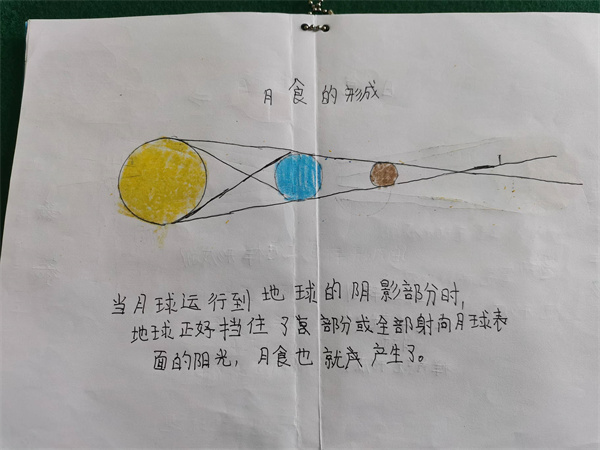 月食的形成
当月球运行到地球的阴影部分时,
地球正好挡住了部分或全部射向月球表
面的阳光,月食也就产生了。